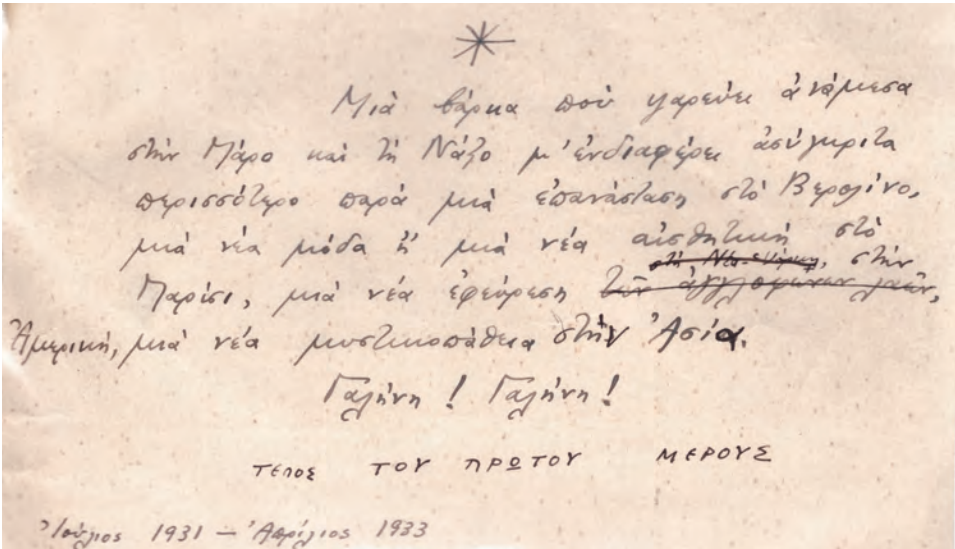 Μιὰ βάρκα ποὺ ψαρεύει ἀνάμεσα
στὴν Πάρο καὶ τὴ Νάξο μ' ἐνδιαφέρει ἀσύγκριτα
περισσότερο παρὰ μιὰ ἐπανάσταση στὸ Βερολίνο,
μιὰ νέα μόδα ἢ μιὰ νέα αἰσθητικὴ στὸ
στὴν
Παρίσι, μιὰ νέα ἐφεύρεση τῶν ἀγγλοφώνων λαῶν,
Ἀμερική, μιὰ νέα μυστικοπάθεια στὴν Ἀσία.
Γαλήνη ! Γαλήνη !
ΤΕΛΟΣ ΤΟΥ ΠΡΩΤΟΥ ΜΕΡΟΥΣ
Ἰούλιος 1931 — Ἀπρίλιος 1933